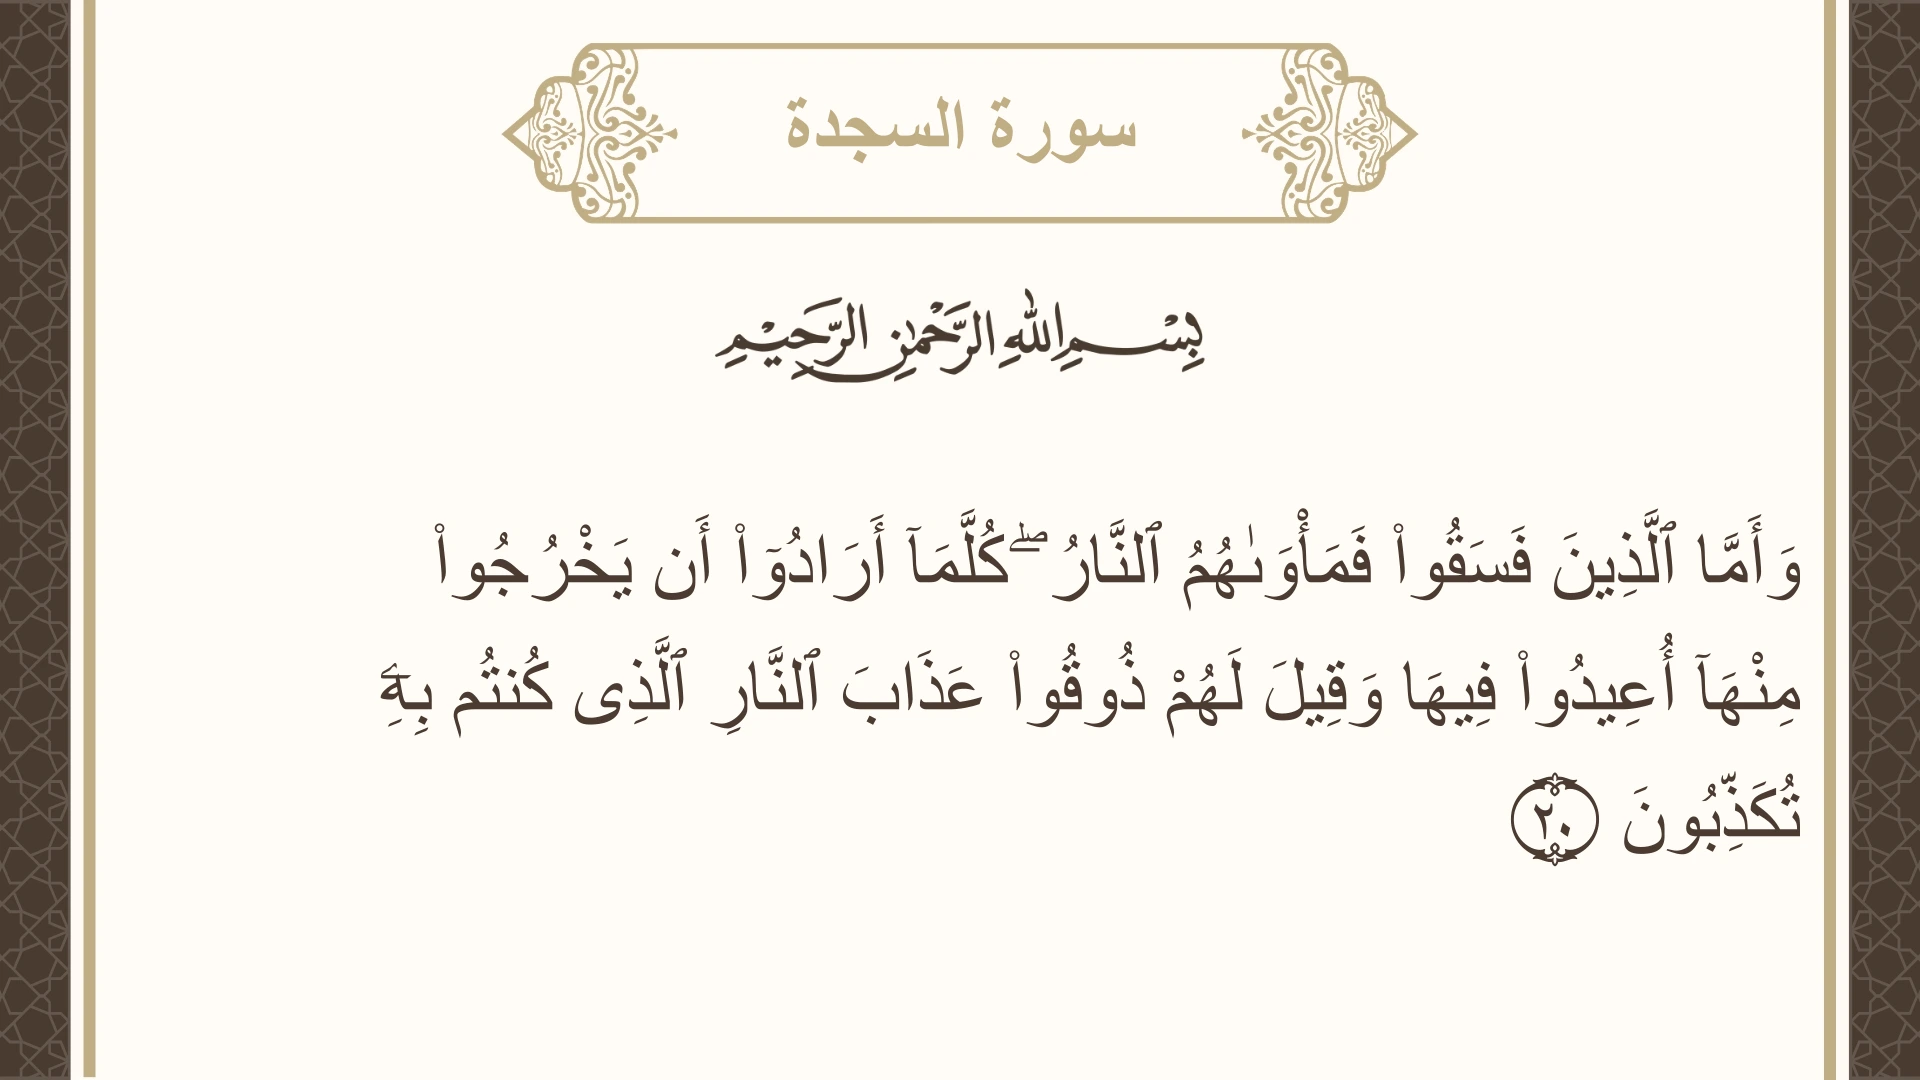 سورة السجدة
بِسْمِ اللهِ الرَّحْمٰنِ الرَّحِيْمِ
وَأَمَّا ٱلَّذِينَ فَسَقُوا۟ فَمَأْوَىٰهُمُ ٱلنَّارُ ۖ كُلَّمَآ أَرَادُوٓا۟ أَن يَخْرُجُوا۟
مِنْهَآ أُعِيدُوا۟ فِيهَا وَقِيلَ لَهُمْ ذُوقُوا۟ عَذَابَ ٱلنَّارِ ٱلَّذِى كُنتُم بِهِۦ
تُكَذِّبُونَ ٢٠